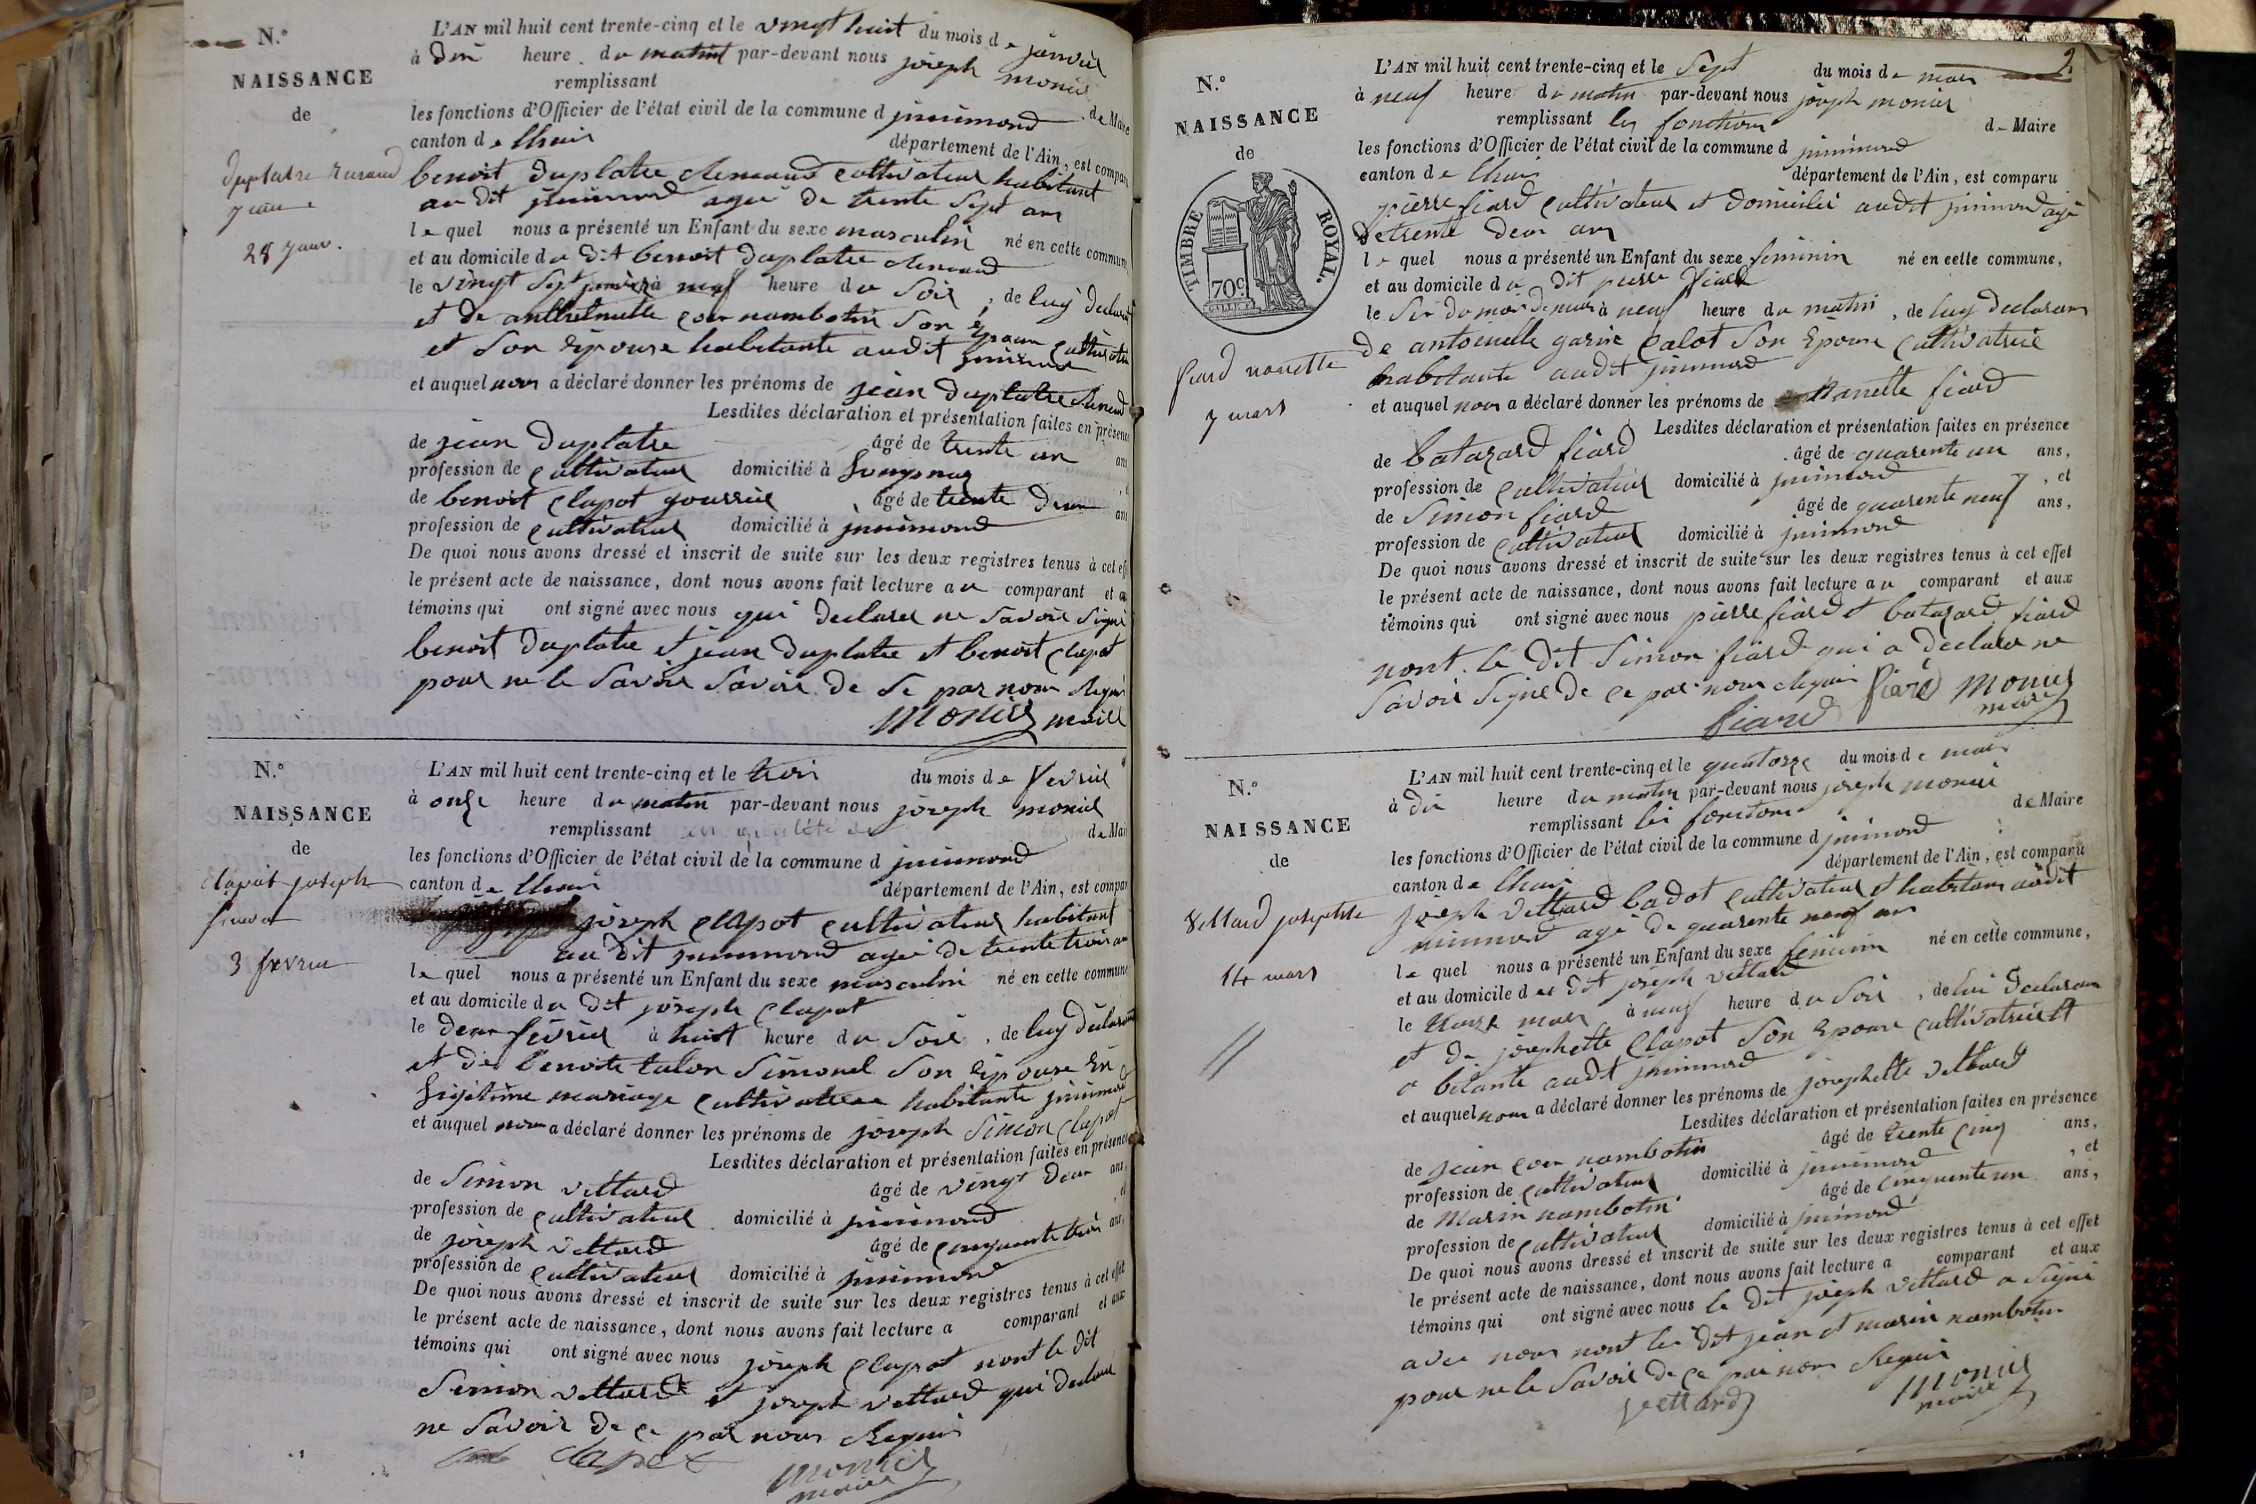 N.°
NAISSANCE
de
duplatre
jean
28 janv.
L'AN mil huit cent trente-cinq et le vingt huit du mois de janvier
à dix heure du matin par-devant nous joseph monier
remplissant de Maire
les fonctions d'Officier de l'état civil de la commune d junimond
canton de lhuis département de l'Ain, est comparu
benoit duplatre cultivateur habitant
au dit junimond agé de trente sept ans
lequel nous a présenté un Enfant du sexe masculin né en cette commune
et au domicile du dit benoit duplatre
le vingt sept janvier à neuf heure du soir, de luy declarant
et de son epouse cultivatrice
et son epouse habitante audit junimond
et auquel nous a déclaré donner les prénoms de jean duplatre
Lesdites déclaration et présentation faites en présence
de jean duplatre âgé de trente un ans
profession de cultivateur domicilié à
de benoit clapot âgé de trente deux ans
profession de cultivateur domicilié à junimond
De quoi nous avons dressé et inscrit de suite sur les deux registres tenus à cet eff
le présent acte de naissance, dont nous avons fait lecture au comparant et a
témoins qui ont signé avec nous qui declarer ne savoir signé
benoit duplatre et jean duplatre et benoit clapot
pour ne le savoir savoir de ce par nous requis
monier maire
N.°
NAISSANCE
de
Clapot joseph
simon
3 fevrier
L'AN mil huit cent trente-cinq et le trois du mois de fevrier
à onze heure du matin par-devant nous joseph monier
remplissant de Mai
les fonctions d'Officier de l'état civil de la commune d junimond
canton de lhuis département de l'Ain, est compar
joseph clapot cultivateur habitant
au dit junimond agé de trente trois ans
lequel nous a présenté un Enfant du sexe masculin né en cette commune
et au domicile du dit joseph clapot
le deux février à huit heure du soir, de luy déclarant
et de benoite talon simonel son epouse en
legitime mariage cultivatrice habitante junimond
et auquel nous a déclaré donner les prénoms de joseph simon clapot
Lesdites déclaration et présentation faites en présence
de simon vettard âgé de vingt deux ans,
profession de cultivateur domicilié à junimond
de joseph vettard âgé de cinquante trois ans,
profession de cultivateur domicilié à junimond
De quoi nous avons dressé et inscrit de suite sur les deux registres tenus à cet effet
le présent acte de naissance, dont nous avons fait lecture a comparant et aux
témoins qui ont signé avec nous joseph clapot nont le dit
simon vettard et joseph vettard qui declare
ne savoir de ce par nous requis
clapot
monier
maire
2
N.°
NAISSANCE
de
TIMBRE ROYAL.
70c.
fiard nanette
7 mars
L'AN mil huit cent trente-cinq et le sept du mois de mars
à neuf heure du matin par-devant nous joseph monier
remplissant les fonctions de Maire
les fonctions d'Officier de l'état civil de la commune d junimond
canton de lhuis département de l'Ain, est comparu
pierre fiard cultivateur et domicilié audit junimond agé
de trente deux ans
lequel nous a présenté un Enfant du sexe feminin né en cette commune,
et au domicile du dit pierre fiard
le six du mois de mars à neuf heure du matin, de luy declarant
de antoinette calot son epouse cultivatrice
habitante audit junimond
et auquel nous a déclaré donner les prénoms de nanette fiard
Lesdites déclaration et présentation faites en présence
de batazard fiard âgé de quarente un ans,
profession de cultivateur domicilié à junimond, et
de simon fiard âgé de quarente neuf ans,
profession de cultivateur domicilié à junimond
De quoi nous avons dressé et inscrit de suite sur les deux registres tenus à cet effet
le présent acte de naissance, dont nous avons fait lecture au comparant et aux
témoins qui ont signé avec nous pierre fiard et batazard fiard
nont le dit simon fiard qui a declare ne
savoir signé de ce par nous requis fiard monier
fiard maire
N.°
NAISSANCE
de
Vettard josephte
14 mars
L'AN mil huit cent trente-cinq et le quatorze du mois de mars
à dix heure du matin par-devant nous joseph monier
remplissant les fonctions de Maire
les fonctions d'Officier de l'état civil de la commune d junimond
canton de lhuis département de l'Ain, est comparu
joseph vettard badot cultivateur et habitant audit
junimond agé de quarente neuf ans
lequel nous a présenté un Enfant du sexe feminin né en cette commune,
et au domicile du dit joseph vettard
le mars à neuf heure du soir, de lui declarant
et de josephette clapot son epouse cultivatrice et
abitante audit junimond
et auquel nous a déclaré donner les prénoms de josephette vettard
Lesdites déclaration et présentation faites en présence
de jean nambotin âgé de trente cinq ans,
profession de cultivateur domicilié à junimond, et
de Marin nambotin âgé de cinquente un ans,
profession de cultivateur domicilié à junimond
De quoi nous avons dressé et inscrit de suite sur les deux registres tenus à cet effet
le présent acte de naissance, dont nous avons fait lecture a comparant et aux
témoins qui ont signé avec nous le dit joseph vettard a signé
avec nous nont les dit jean et marin nambotin
pour ne le savoir de ce par nous requis
vettard monier
maire